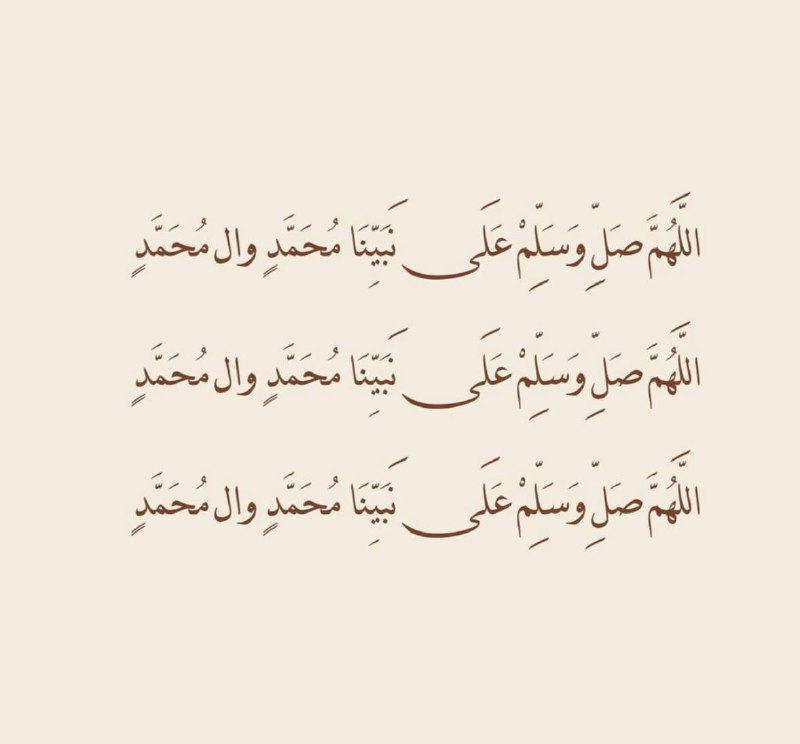 اللَّهُمَّ صَلِّ وَسَلِّمْ عَلَى نَبَيِّنَا مُحَمَّدٍ وال مُحَمَّدٍ
اللَّهُمَّ صَلِّ وَسَلِّمْ عَلَى نَبَيِّنَا مُحَمَّدٍ وال مُحَمَّدٍ
اللَّهُمَّ صَلِّ وَسَلِّمْ عَلَى نَبَيِّنَا مُحَمَّدٍ وال مُحَمَّدٍ